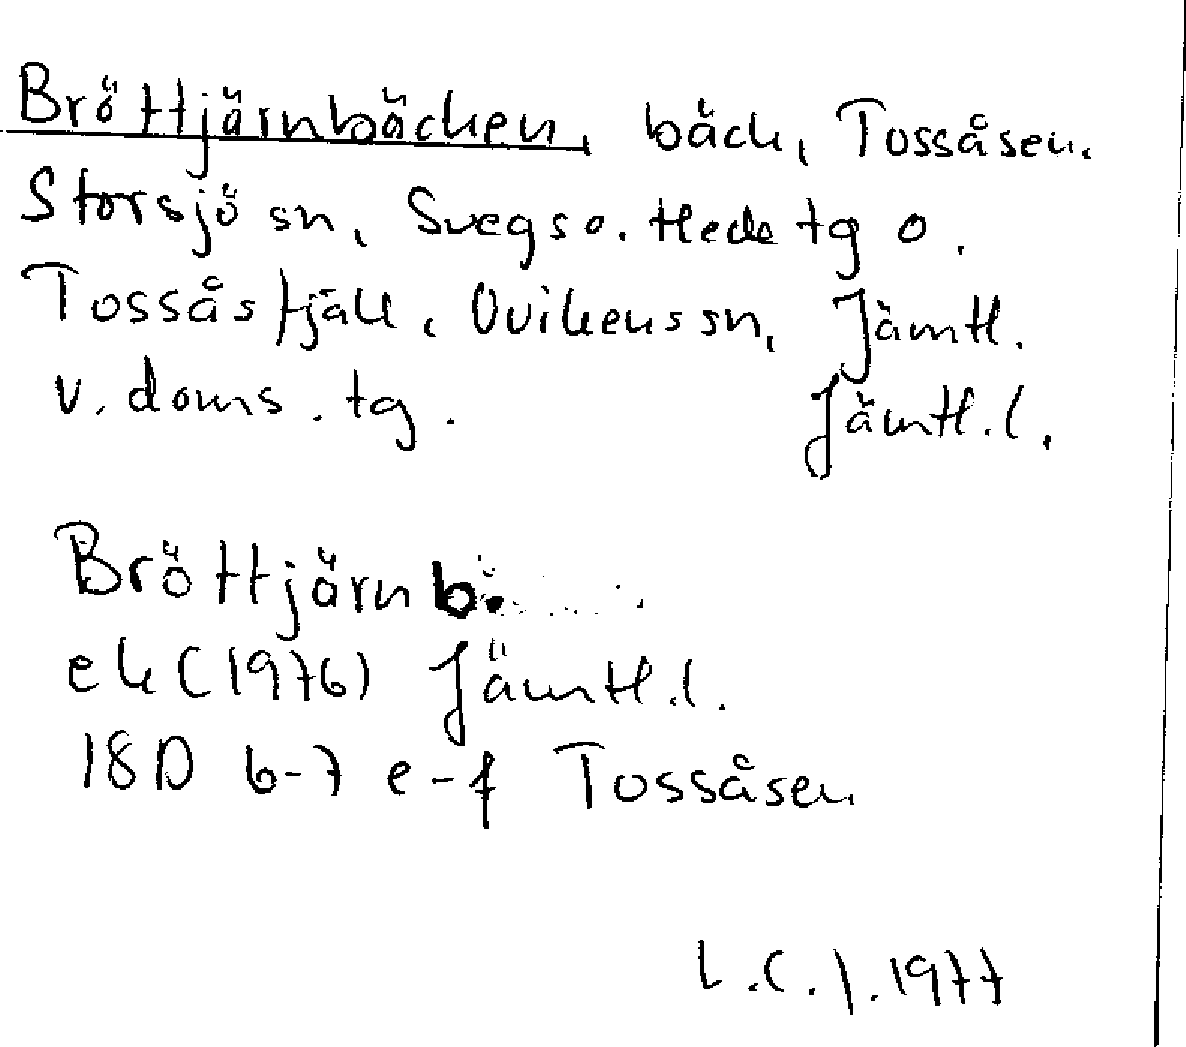 Bröttjärnbäcken, bäck, Tossåsen.
Storsjö sn, Svegs o. Hede tg o.
Tossåsfjäll, Ovikens sn, Jämtl.
v. doms. tg. Jämtl. l.
Bröttjärnb.
ek (1976) Jämtl. l.
18D 6-7 e-f Tossåsen
L.C.J. 1977